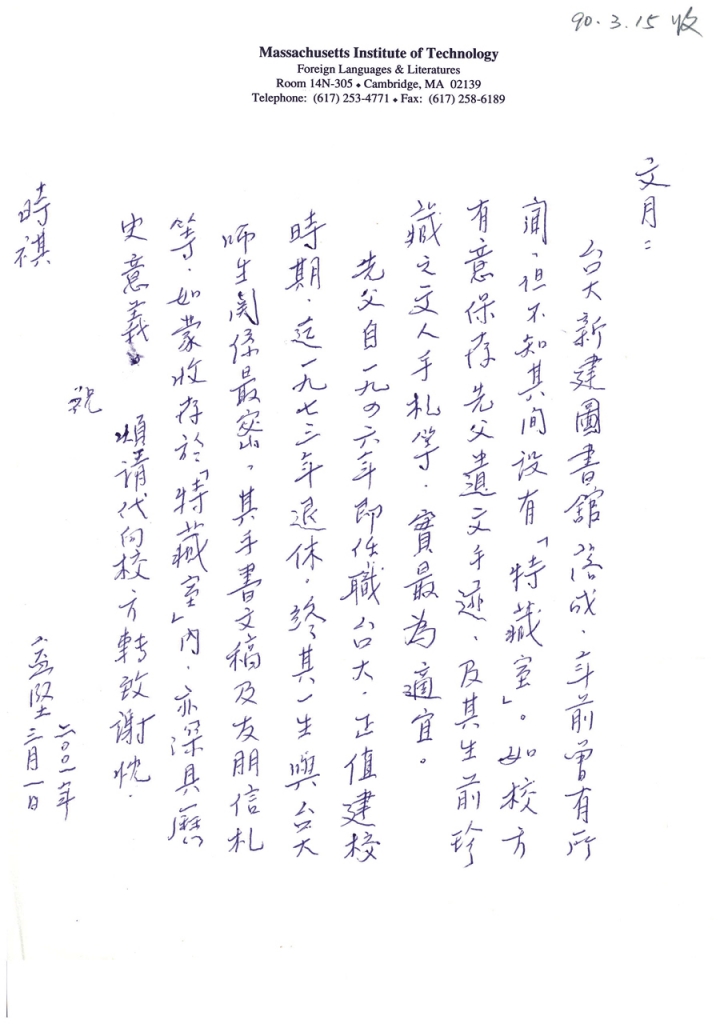 90.3.15 收
Massachusetts Institute of Technology
Foreign Languages & Literatures
Room 14N-305 ⬩ Cambridge, MA 02139
Telephone: (617) 253-4771 ⬩ Fax: (617) 258-6189
文月：
台大新建圖書館落成，年前曾有所
聞，但不知其间設有「特藏室」。如校方
有意保存先父遺文手迹，及其生前珍
藏之文人手札等，實最為適宜。
先父自一九四六年即任職台大，正值建校
時期，迄一九七三年退休，終其一生與台大
師生関係最密，其手書文稿及友朋信札
等，如蒙收存於「特藏室」內，亦深具歷
史意義。煩請代向校方轉致謝忱。
祝
時祺
益堅
二〇〇一年
三月一日